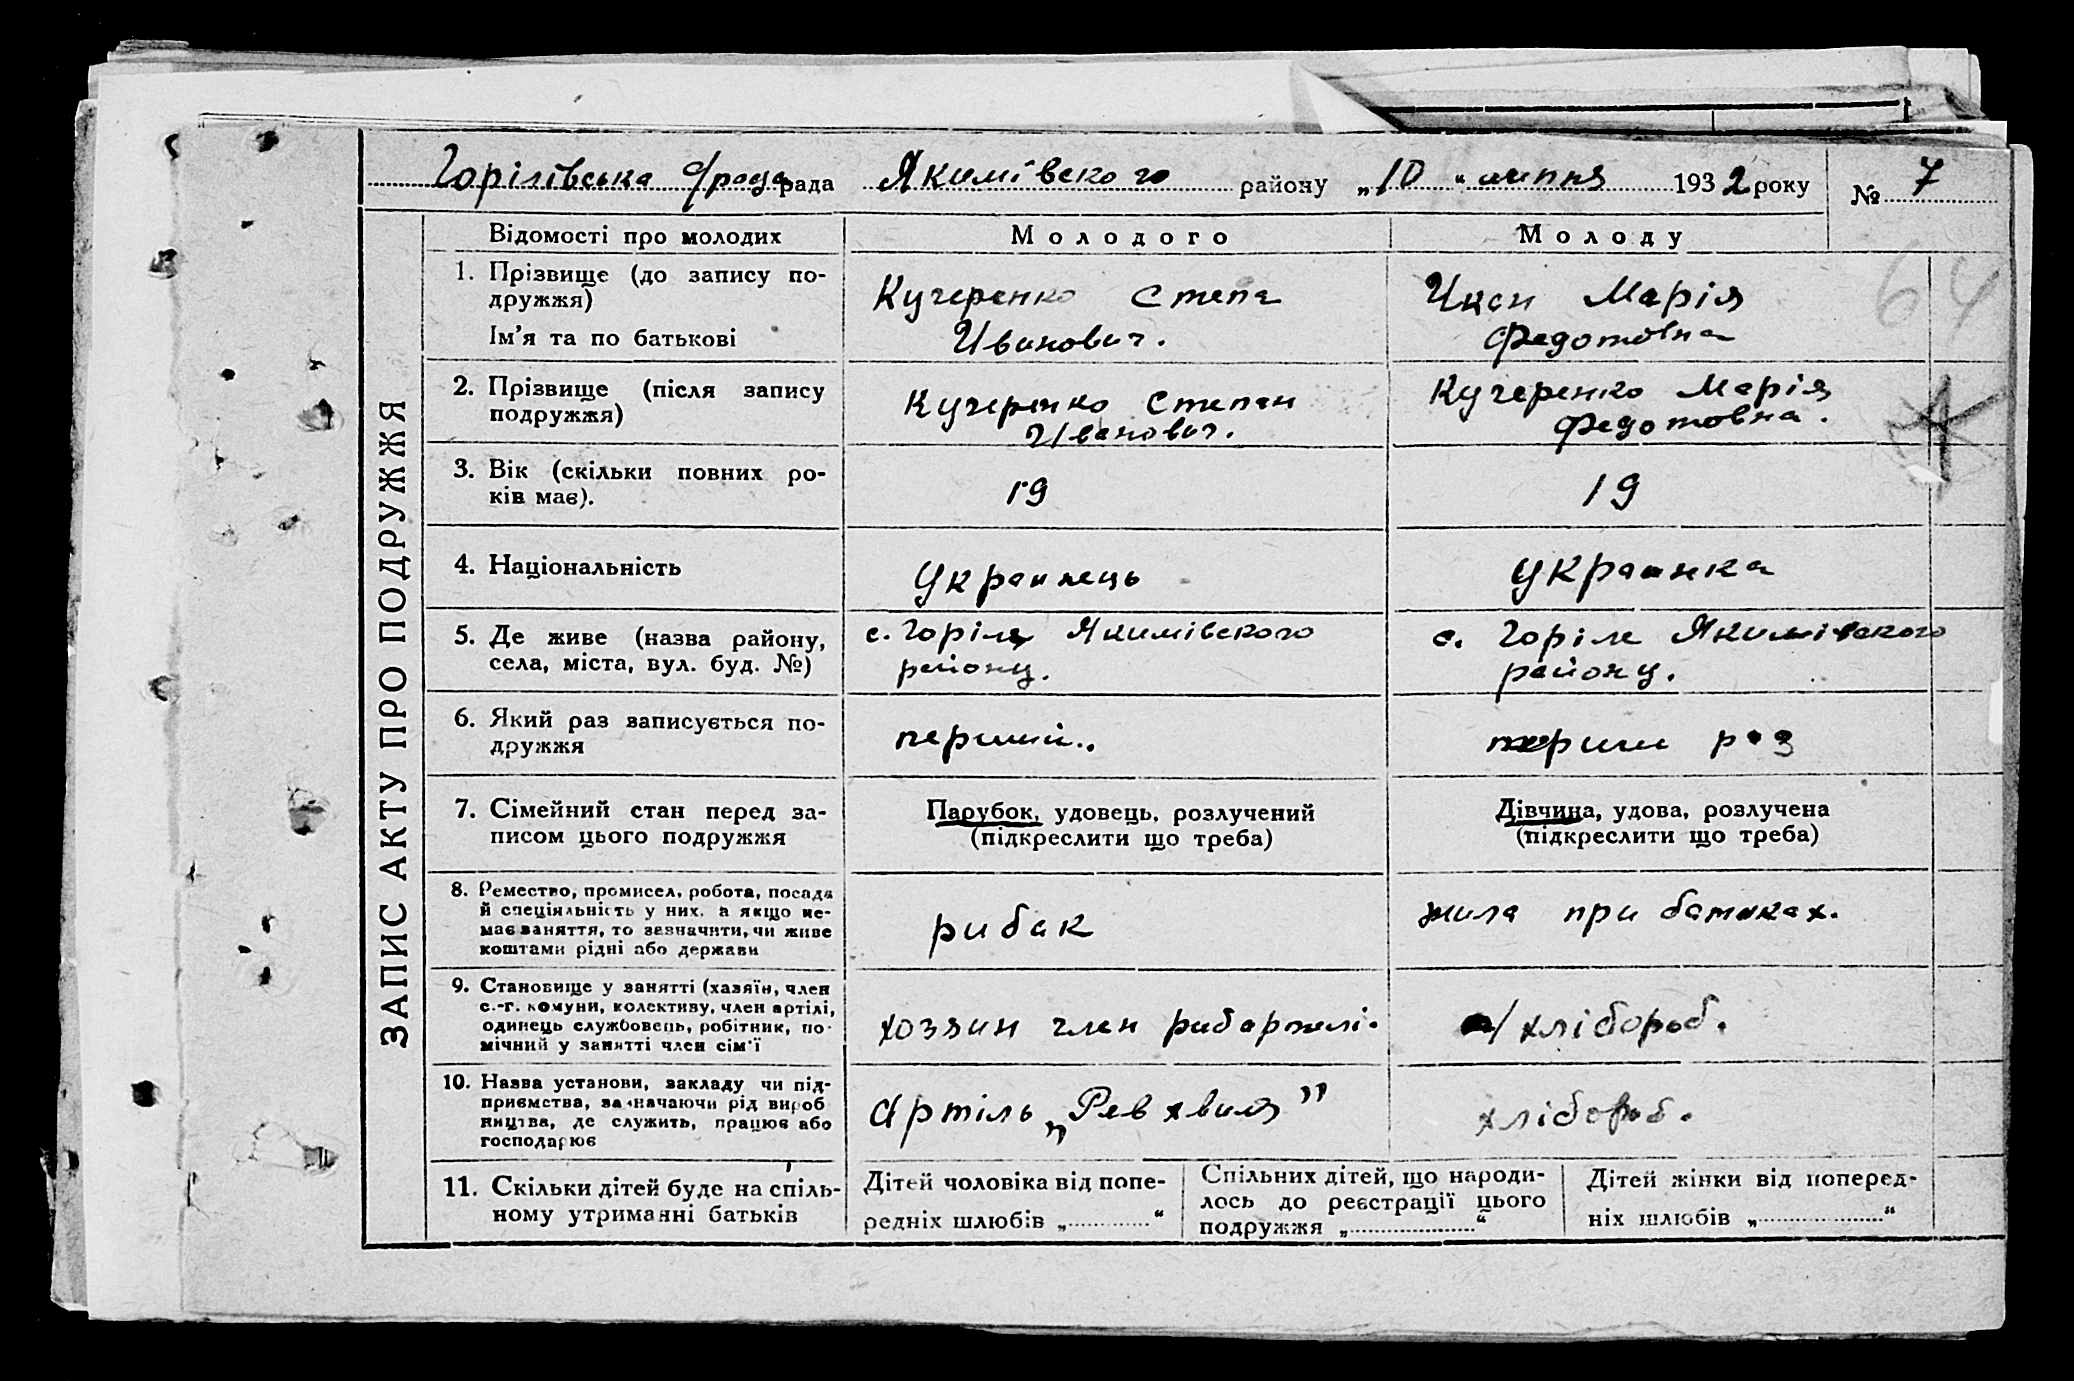 Горілівська с/рада рада Якимівского району „10" липня 1932 року № 7
ЗАПИС АКТУ ПРО ПОДРУЖЖЯ
Відомості про молодих
Молодого
Молоду
64
1. Прізвище (до запису по-
дружжя)
Ім'я та по батькові
Кучеренко Степа
Иванович.
Марія
Федотовна
2. Прізвище (після запису
подружжя)
Кучеренко Степан
Иванович.
Кучеренко Марія
Федотовна.
3. Вік (скільки повних ро-
ків має).
19
19
4. Національність
Украинець
Украинка
5. Де живе (назва району,
села, міста, вул. буд. №)
с. Горіле Якимівского
району.
с. Горіле Якимівского
району.
6. Який раз записується по-
дружжя
перший..
раз
7. Сімейний стан перед за-
писом цього подружжя
Парубок, удовець, розлучений
(підкреслити що треба)
Дівчина, удова, розлучена
(підкреслити що треба)
8. Ремество, промисел, робота, посада
й спеціяльність у них, а якщо не-
має заняття, то зазначити, чи живе
коштами рідні або держави
рибак
жила при батиках.
9. Становище у занятті (хазяїн, член
с.-г. комуни, колективу, член артілі,
одинець службовець, робітник, по-
мічний у занятті член сім'ї
хозяин член рибартілі.
хлібороб.
10. Назва установи, закладу чи під-
приємства, зазначаючи рід вироб
ництва, де служить, працює або
господарює
Артіль „Рев хвиля"
хлібороб.
11. Скільки дітей буде на спіль-
ному утриманні батьків
Дітей чоловіка від попе-
редніх шлюбів „ "
Спільних дітей, що народи-
лось до реєстрації цього
подружжя „ "
Дітей жінки від поперед-
ніх шлюбів „ "